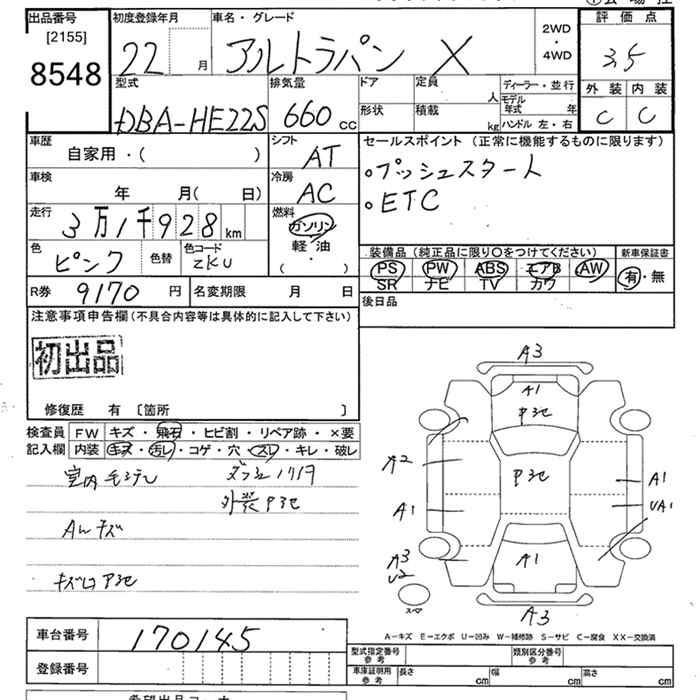 出品番号
[2155]
8548
初度登録年月
22 月
車名・グレード
アルトラパン X
2WD
・
4WD
評価点
3.5
外装 内装
C C
型式
DBA-HE22S
排気量
660 cc
ドア
形状
定員 人
積載 kg
ディーラー・並行
モデル年式 年
ハンドル 左・右
車歴
自家用・( )
シフト
AT
セールスポイント (正常に機能するものに限ります)
・プッシュスタート
・ETC
車検
年 月( 日)
冷房
AC
走行
3万1千928 km
燃料
ガソリン
軽油
( ・ )
色
ピンク
色替
色コード
ZKU
装備品 (純正品に限り○をつけてください)
PS PW ABS エアB AW
SR ナビ TV カワ
新車保証書
有・無
R券 9170 円
名変期限 月 日
後日品
注意事項申告欄(不具合内容等は具体的に記入して下さい)
初出品
修復歴 有 〔箇所 〕
検査員
記入欄
FW キズ・飛石・ヒビ割・リペア跡・×要
内装 キズ・汚レ・コゲ・穴・スレ・キレ・破レ
A3
A1
A2
A1
A1
UA1
A3
U2
A1
A3
スペア
A-キズ E-エクボ U-凹み W-補修跡 S-サビ C-腐食 XX-交換済
車台番号
170145
登録番号
型式指定番号
参考
類別区分番号
参考
車庫証明用
参考
長さ cm
幅 cm
高さ cm